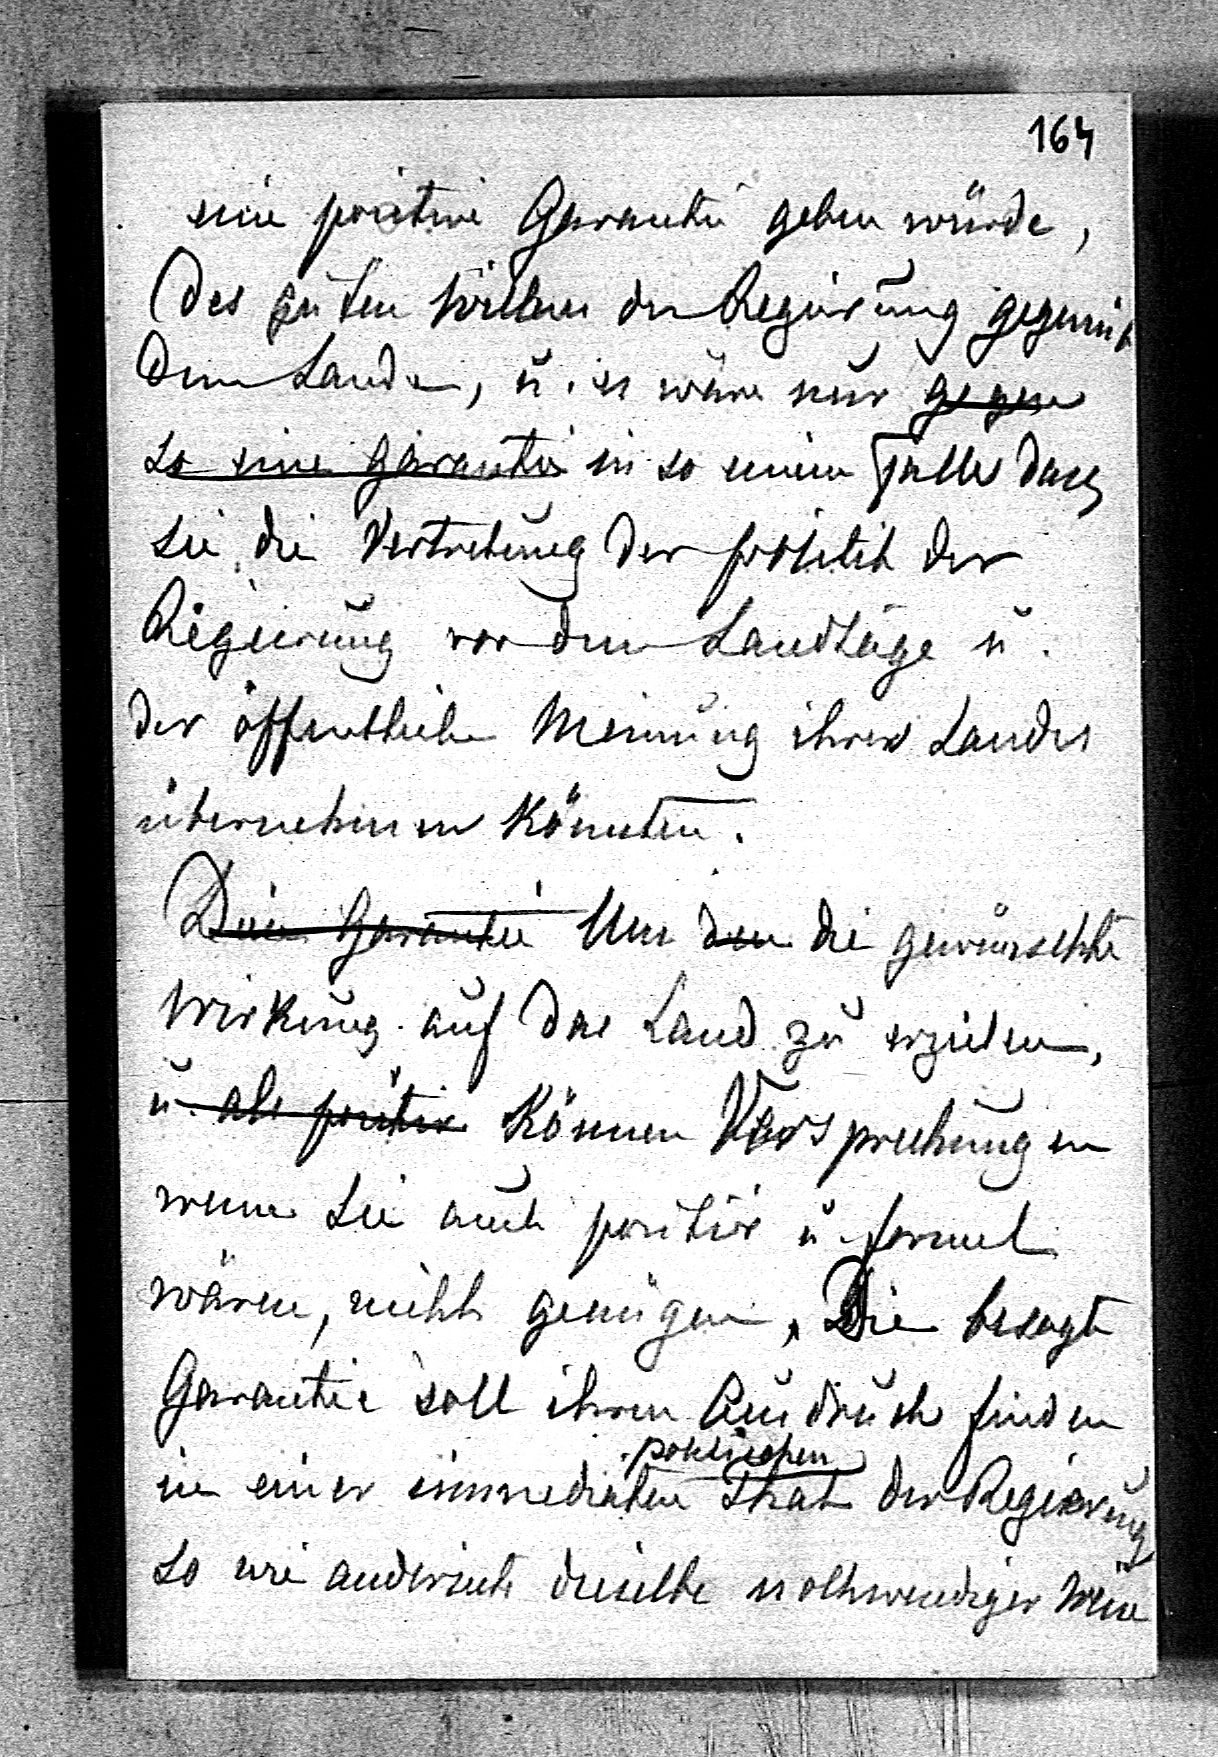 164
eine positive Garantie geben würde,
des guten Willens der Regierung gegenüb
dem Lande, u. es wäre nur gegen
so eine garantie in so einem Falle dass
sie die Vertretung der politik der
Regierung vor dem Landtage u.
der öffentliche Meinung ihres Landes
übernehmen könnten.
Garantie Um den die gewünschte
Wirkung auf das Land zu erzielen,
u. als positiv können Versprechungen
wenn sie auch positiv u. formel
wären, nicht genügen, Die besagte
Garantie soll ihren Ausdruck finden
politischen
in einer immediaten That der Regierung
so wie anderseits dieselbe nothwendiger Weise